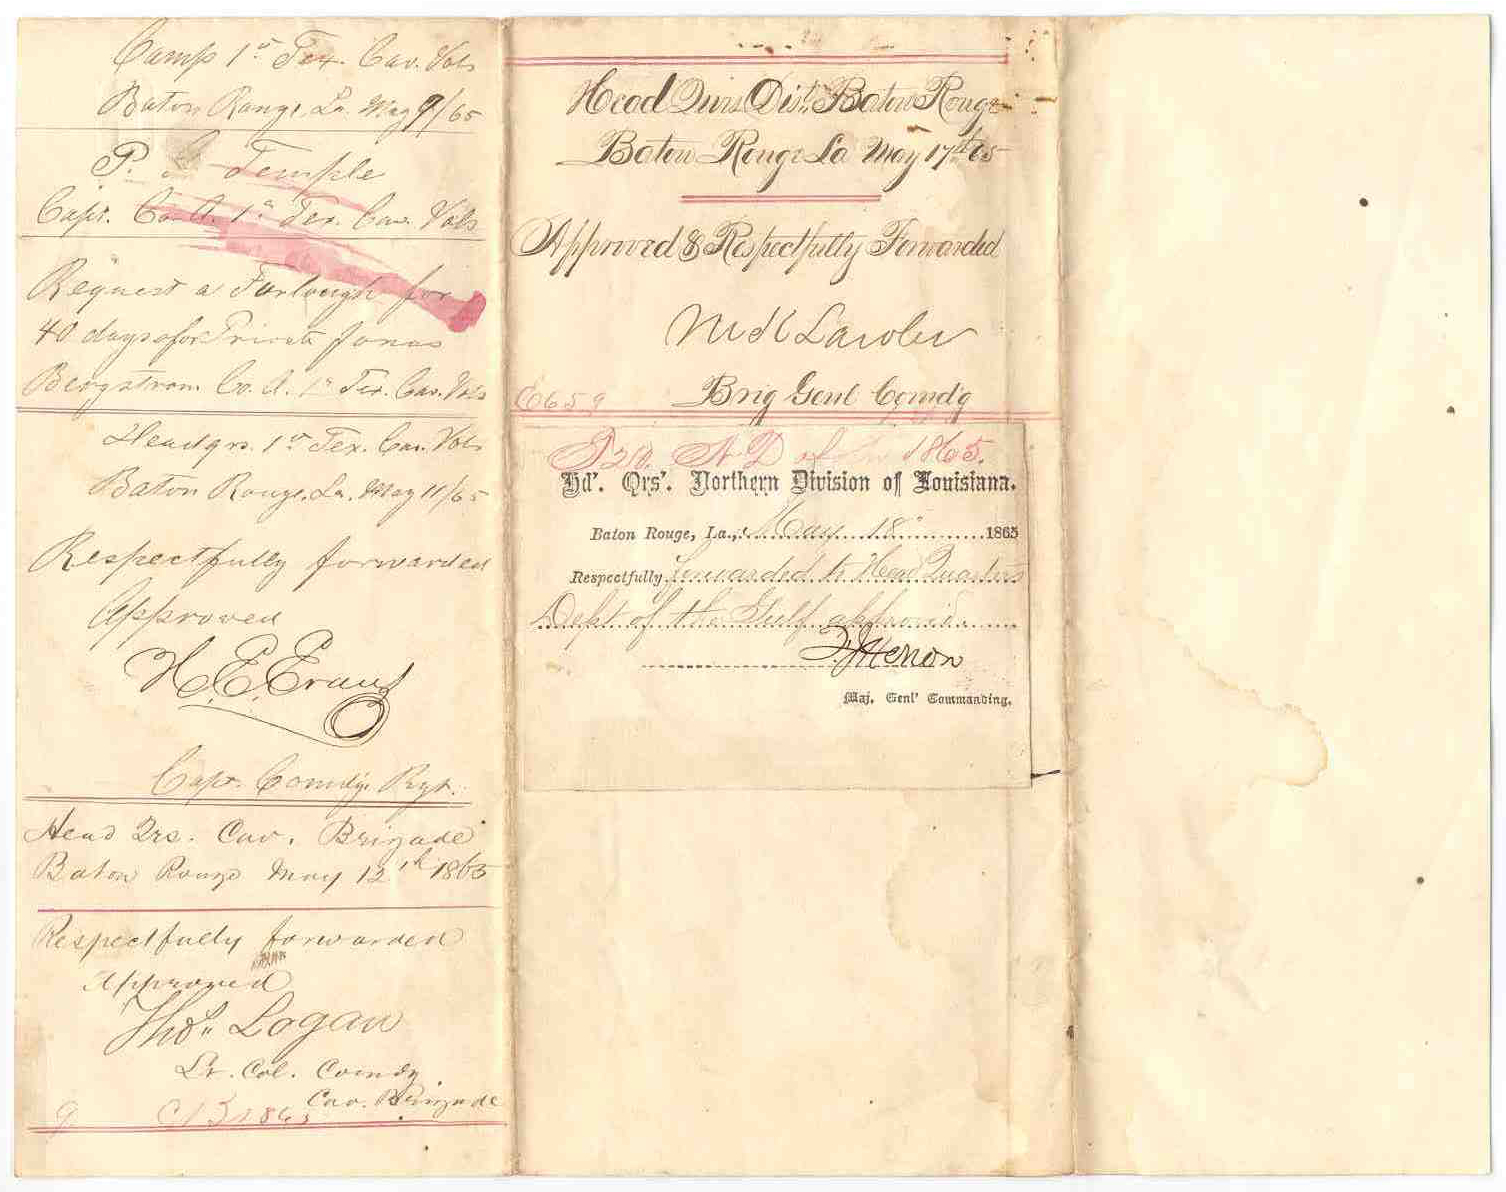 Camp 1st Tex. Cav. Vols
Baton Rouge, La. May 9/65
P. Temple
Capt. Co. A. 1st Tex. Cav. Vols
Request a Furlough for
40 days for Private Jonas
Bergstrom Co. A. 1st Tex. Cav. Vols
Headqrs. 1st Tex. Cav. Vols
Baton Rouge, La. May 11/65
Respectfully forwarded
Approved
H. E. Evans
Capt. Comdg. Rgt.
Head Qrs. Cav. Brigade
Baton Rouge May 12th 1865
Respectfully forwarded
Approved
Thos. Logan
Lt. Col. Comdg.
Cav. Brigade
1865
Head Qurs Dist. Baton Rouge
Baton Rouge La May 17th 65
Approved & Respectfully Forwarded
M K Lawler
Brig Genl Comdg
E659
N D of 1865.
Hd'. Qrs'. Northern Division of Louisiana.
Baton Rouge, La., May 18" 1865
Respectfully forwarded to Head Quarters
Dept of the Gulf approved.
F J Herron
Maj. Genl' Commanding.